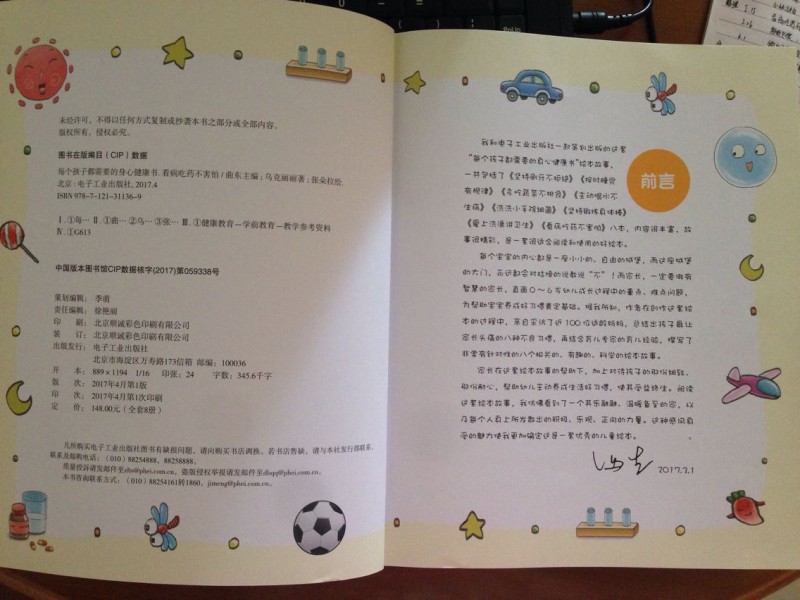 未经许可，不得以任何方式复制或抄袭本书之部分或全部内容。
版权所有，侵权必究。
图书在版编目（CIP）数据
每个孩子都需要的身心健康书.看病吃药不害怕 / 曲东主编；乌克丽丽著；张朵拉绘.
北京：电子工业出版社，2017.4
ISBN 978-7-121-31136-9
Ⅰ.①每… Ⅱ.①曲…②乌…③张… Ⅲ.①健康教育－学前教育－教学参考资料
Ⅳ.①G613
中国版本图书馆CIP数据核字(2017)第059338号
策划编辑：李萌
责任编辑：徐艳丽
印 刷：北京顺诚彩色印刷有限公司
装 订：北京顺诚彩色印刷有限公司
出版发行：电子工业出版社
北京市海淀区万寿路173信箱 邮编：100036
开 本：889×1194 1/16 印张：24 字数：345.6千字
版 次：2017年4月第1版
印 次：2017年4月第1次印刷
定 价：148.00元（全套8册）
凡所购买电子工业出版社图书有缺损问题，请向购买书店调换。若书店售缺，请与本社发行部联系，
联系及邮购电话：（010）88254888，88258888。
质量投诉请发邮件至zlts@phei.com.cn，盗版侵权举报请发邮件至dbqq@phei.com.cn。
本书咨询联系方式：（010）88254161转1860，jimeng@phei.com.cn。
前言
我和电子工业出版社一起策划出版的这套
“每个孩子都需要的身心健康书”绘本故事，
一共包括了《坚持刷牙不拒绝》《按时睡觉
有规律》《多吃蔬菜不挑食》《主动喝水不
生病》《洗洗小手除细菌》《坚持锻炼身体棒》
《爱上洗澡讲卫生》《看病吃药不害怕》八本，内容很丰富，故
事很精彩，是一套很适合阅读和使用的好绘本。
每个宝宝的内心都是一座小小的、自由的城堡，而这座城堡
的大门，永远都会对枯燥的说教说“不”！而家长，一定要做有
智慧的家长，直面0～6岁幼儿成长过程中的重点、难点问题，
为帮助宝宝养成好习惯奠定基础。据我所知，作者在创作这套绘
本的过程中，亲自采访了近100位适龄妈妈，总结出孩子最让
家长头痛的八种不良习惯，再结合育儿专家的育儿经验，撰写了
非常有针对性的八个相关的、有趣的、科学的绘本故事。
家长在这套绘本故事的帮助下，加上对待孩子的那份细致、
那份耐心，帮助幼儿主动养成生活好习惯，使其受益终生。阅读
这套绘本故事，我仿佛看到了一个其乐融融、温暖备至的家，以
及每个人身上所发散出的积极、乐观、正向的力量。这种感同身
受的魅力使我更加确定这是一套优秀的儿童绘本。
2017.3.1